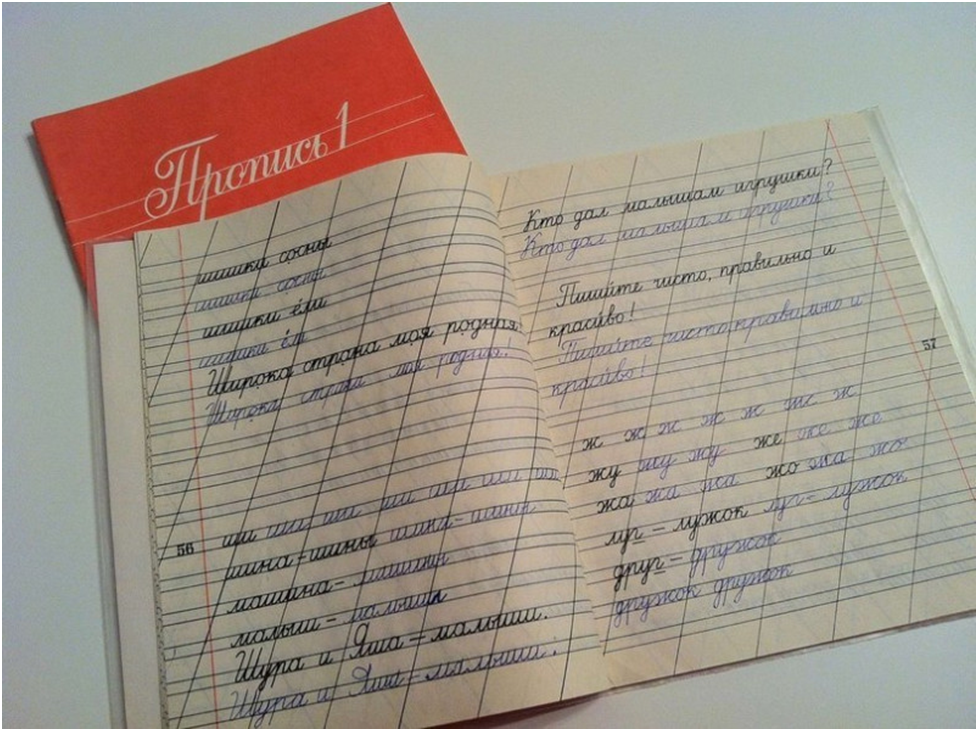 Пропись 1
шишки сосны
шишки сосны
шишки е́ли
шишки е́ли
Широка страна моя родная!
Широка страна моя родная!
56
ши ши ши ши ши ши ши
шина – шины шина – шины
машина – машины
малыш – малыши
Шура и Яша – малыши.
Шура и Яша – малыши.
Кто дал малышам игрушки?
Кто дал малышам игрушки?
Пиши́те чисто, правильно и
краси́во!
Пиши́те чисто, правильно и
краси́во!
57
ж ж ж ж ж ж ж
жу жу жу же же же
жа жа жа жо жо жо
луг – лужок луг – лужок
друг – дружок
дружок дружок